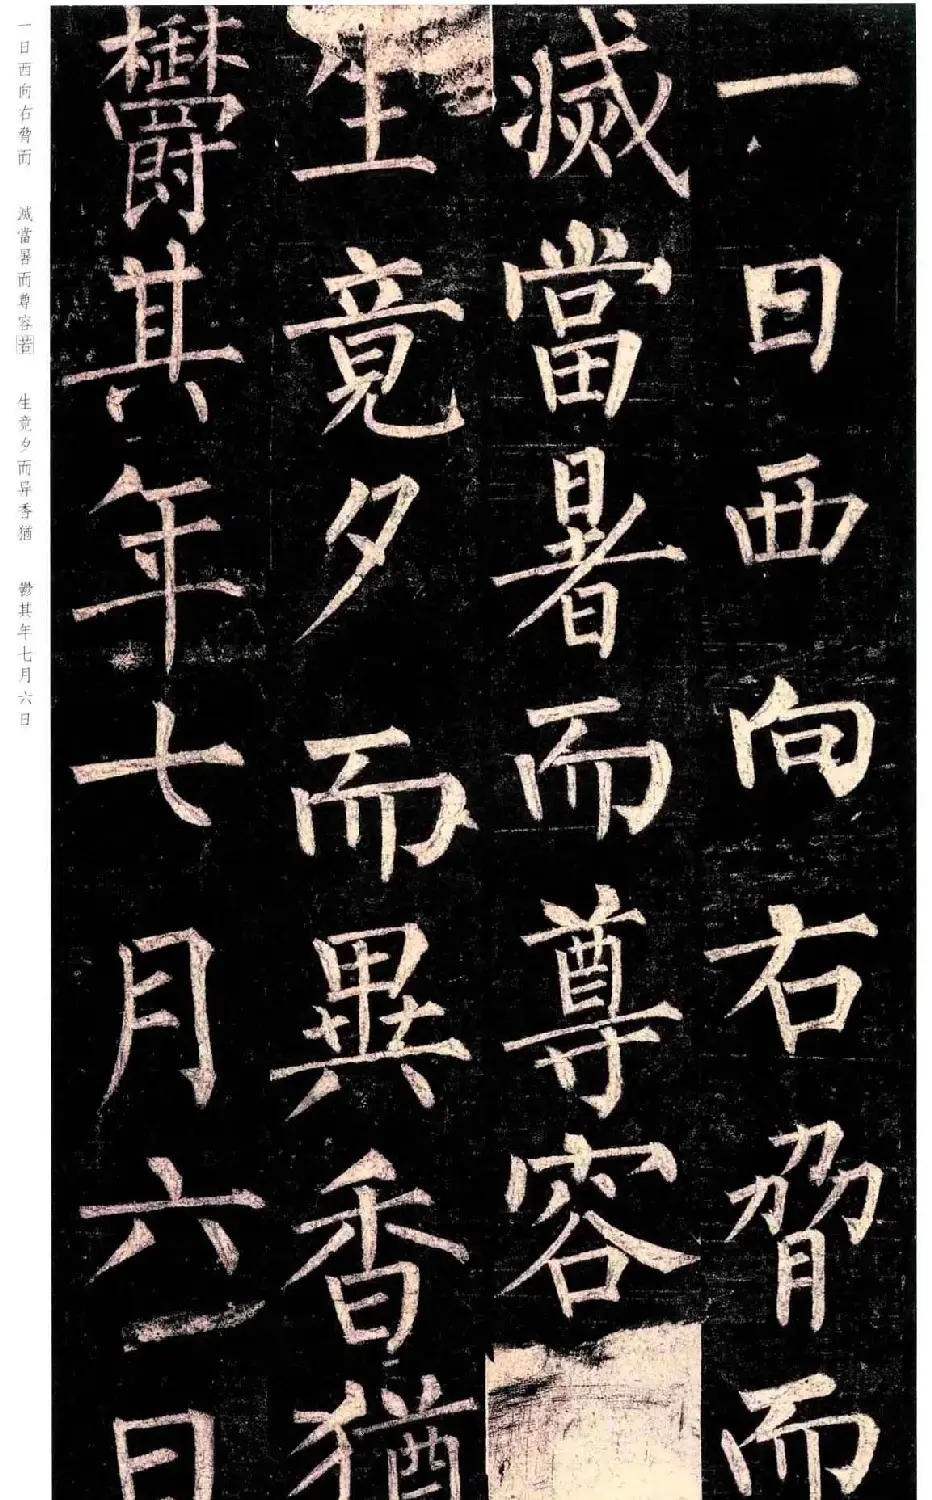 一日西向右脅而
滅當暑而尊容
生竟夕而異香猶
鬱其年七月六日
一日西向右脅而 滅當暑而尊容若 生竟夕而异香猶 鬱其年七月六日